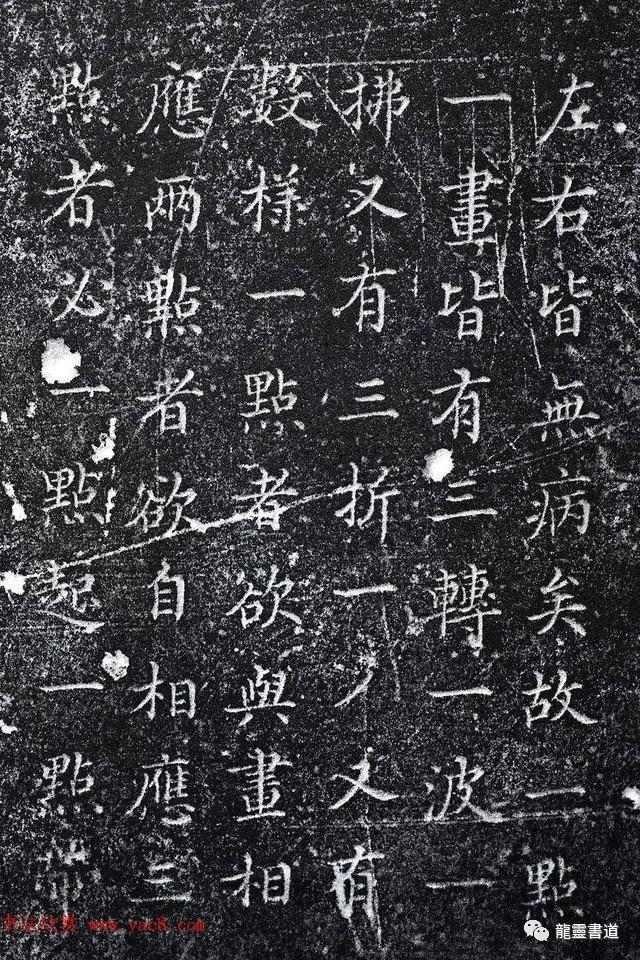 左右皆無病矣故一點
一畫皆有三轉一波一
拂又有三折一丿又有
數様一點者欲與畫相
應兩點者欲自相應三
點者必一點起一點帶
www.yac8.com
龍靈書道